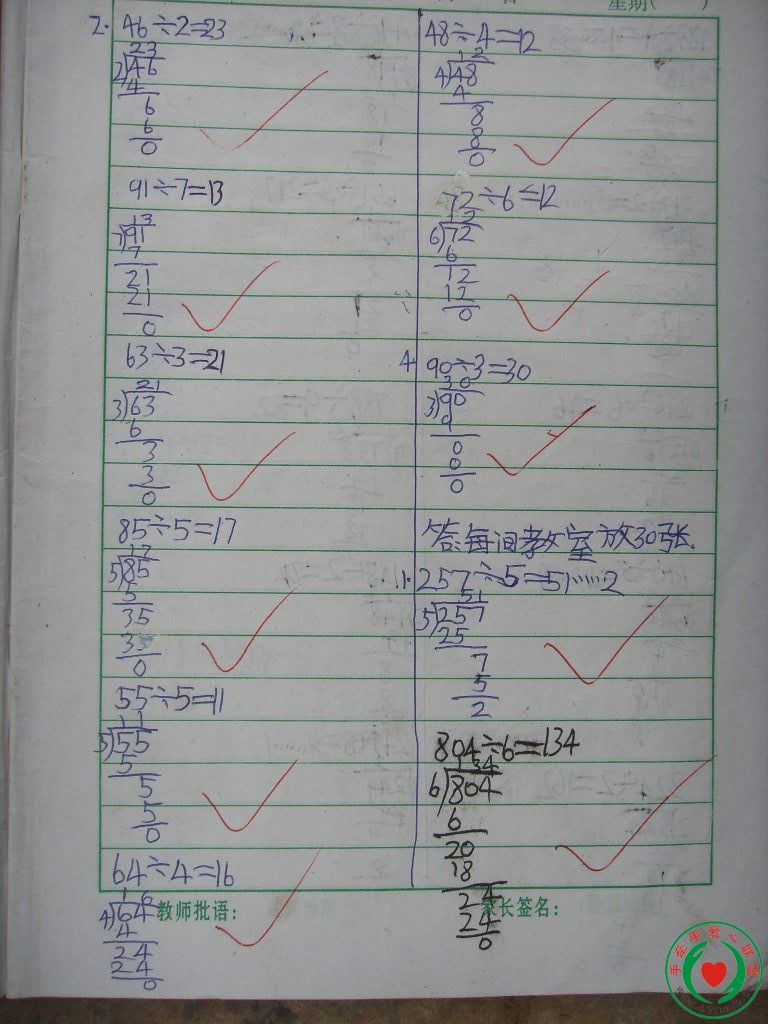 星期( )
2. 46÷2=23
23
2)46
4
6
6
0
91÷7=13
13
7)91
7
21
21
0
63÷3=21
21
3)63
6
3
3
0
85÷5=17
17
5)85
5
35
35
0
55÷5=11
11
5)55
5
5
5
0
64÷4=16
16
4)64
4
24
24
0
教师批语:
48÷4=12
12
4)48
4
8
8
0
72÷6=12
12
6)72
6
12
12
0
4. 90÷3=30
30
3)90
9
0
0
0
答:每间教室放30张.
1. 257÷5=51……2
51
5)257
25
7
5
2
804÷6=134
134
6)804
6
20
18
24
24
0
家长签名:
手牵手爱心联盟